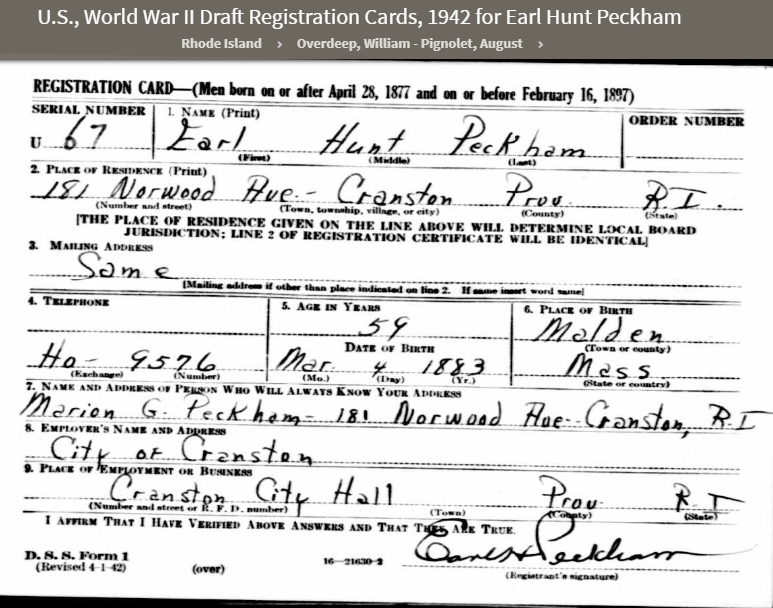 U.S., World War II Draft Registration Cards, 1942 for Earl Hunt Peckham
Rhode Island › Overdeep, William - Pignolet, August ›
REGISTRATION CARD—(Men born on or after April 28, 1877 and on or before February 16, 1897)
SERIAL NUMBER 1. NAME (Print) ORDER NUMBER
U 67 Earl Hunt Peckham
(First) (Middle) (Last)
2. PLACE OF RESIDENCE (Print)
181 Norwood Ave.- Cranston Prov R.I.
(Number and street) (Town, township, village, or city) (County) (State)
[THE PLACE OF RESIDENCE GIVEN ON THE LINE ABOVE WILL DETERMINE LOCAL BOARD
JURISDICTION; LINE 2 OF REGISTRATION CERTIFICATE WILL BE IDENTICAL]
3. MAILING ADDRESS
Same
[Mailing address if other than place indicated on line 2. If same insert word same]
4. TELEPHONE 5. AGE IN YEARS 6. PLACE OF BIRTH
59 Malden
DATE OF BIRTH (Town or county)
Ho- 9576 Mar. 4 1883 Mass
(Exchange) (Number) (Mo.) (Day) (Yr.) (State or country)
7. NAME AND ADDRESS OF PERSON WHO WILL ALWAYS KNOW YOUR ADDRESS
Marion G. Peckham- 181 Norwood Ave- Cranston, R.I
8. EMPLOYER'S NAME AND ADDRESS
City of Cranston
9. PLACE OF EMPLOYMENT OR BUSINESS
Cranston City Hall Prov R.I
(Number and street or R. F. D. number) (Town) (County) (State)
I AFFIRM THAT I HAVE VERIFIED ABOVE ANSWERS AND THAT THEY ARE TRUE.
Earl H Peckham
D. S. S. Form 1
(Revised 4-1-42) (over) 16—21630-2 (Registrant's signature)